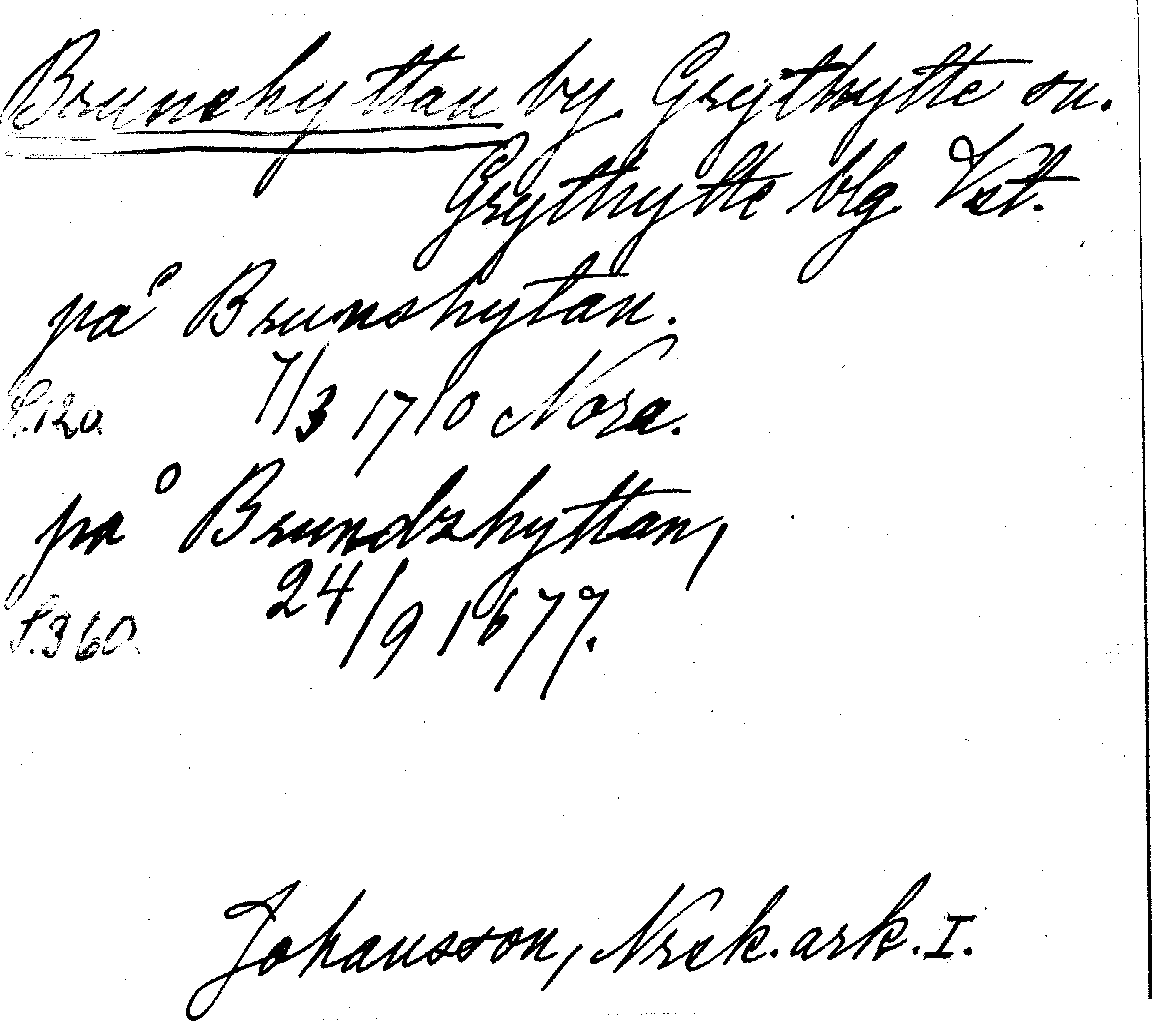 Brunshyttan by Grythytte sn.
Grythytte blg Vst.
på Brunshytan.
S.120. 7/3 1710 Nora.
på Brundzhyttan,
S.360. 24/9 1677.
Johansson, Nrck. ark. I.